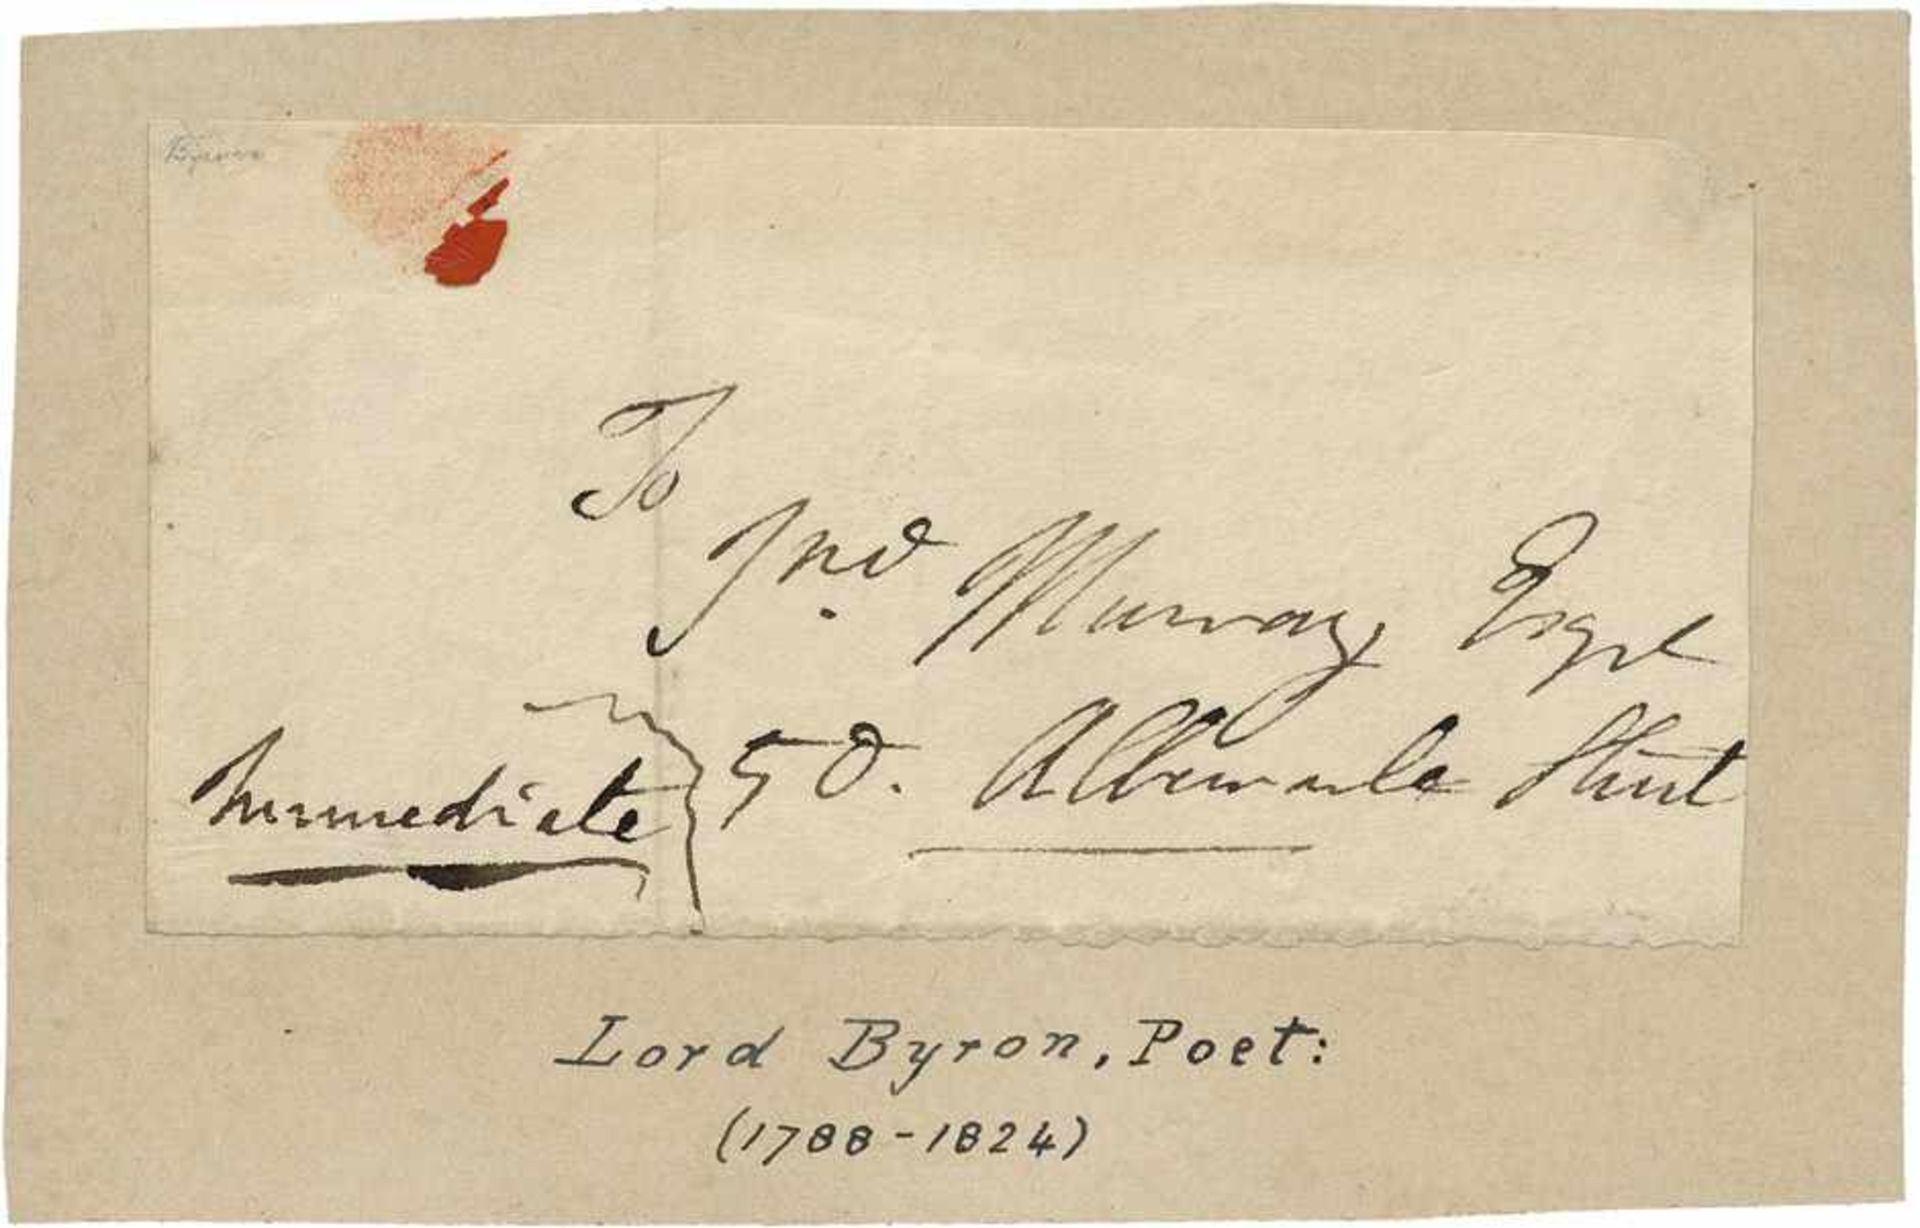 Byron
To
Jno. Murray Esqre
50. Albemarle Street
Immediate
Lord Byron, Poet:
(1788-1824)